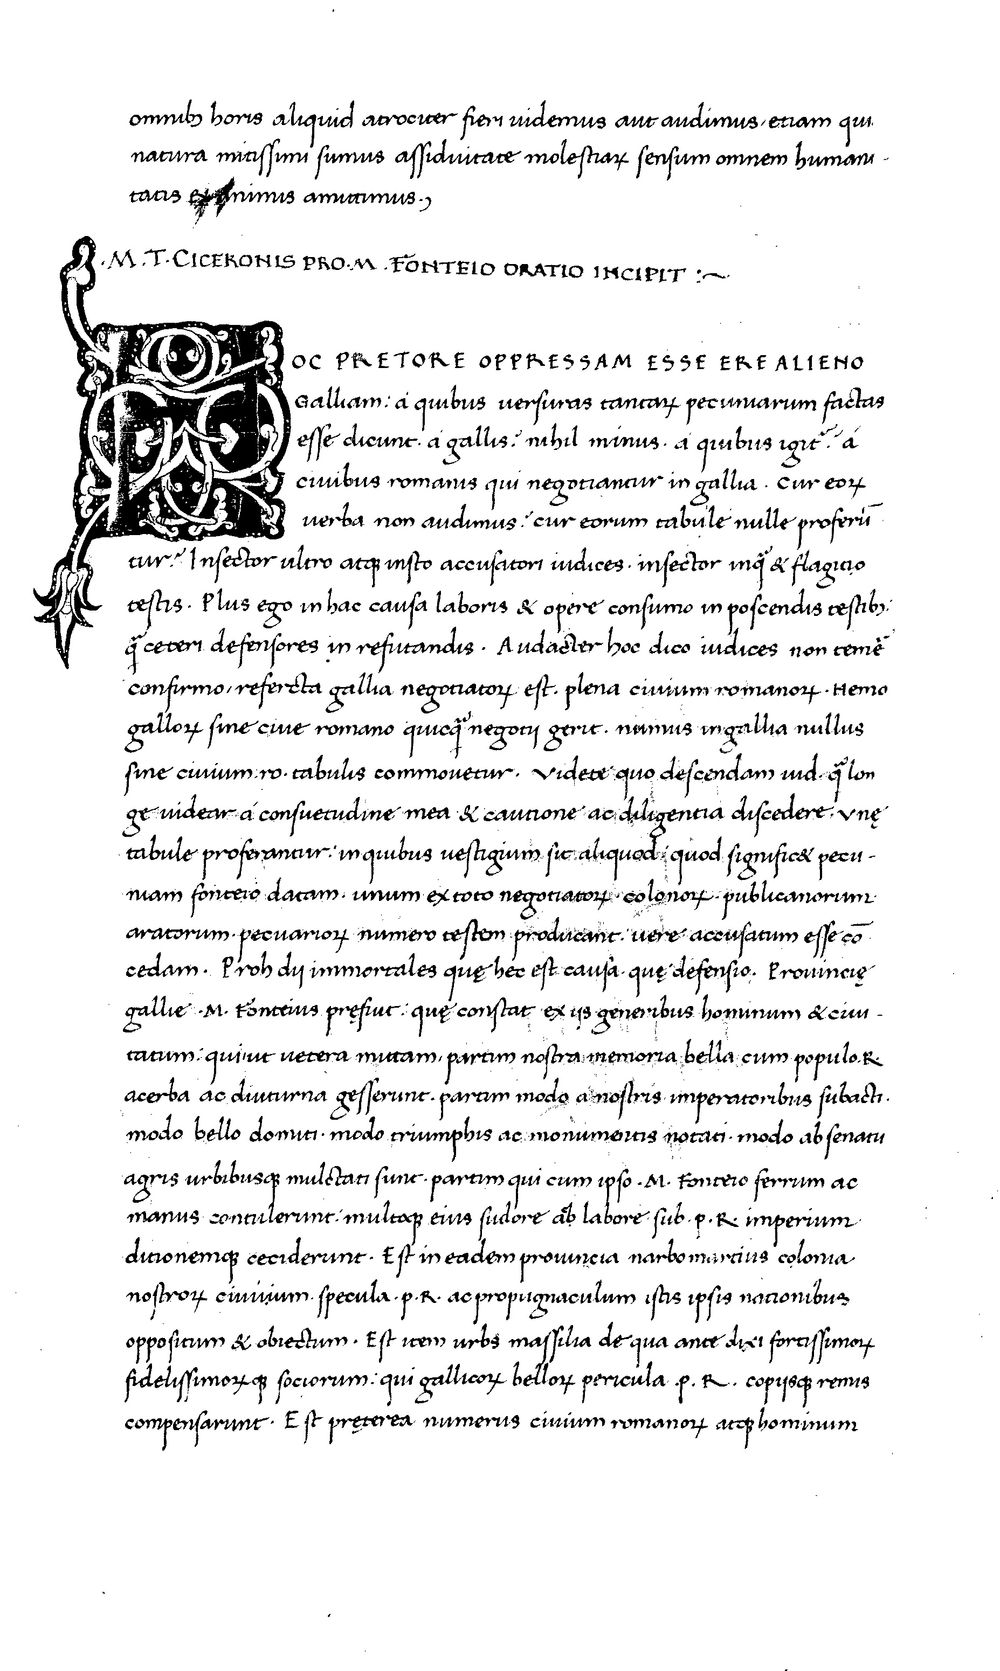 omnibꝫ horis aliquid atrociter fieri uidemus aut audimus, etiam qui
natura mitissimi sumus assiduitate molestiaꝝ sensum omnem humani-
tatis ex animis amittimus.
.M.T.CICERONIS PRO.M.FŌNTEIO ORATIO INCIPIT :~
HOC PRETORE OPPRESSAM ESSE ERE ALIENO
Galliam: á quibus uersuras tantaꝝ pecuniarum factas
esse dicunt. á gallis? nihil minus. á quibus igit̃? á
ciuibus romanis qui negotiantur in gallia. Cur eoꝝ
uerba non audimus? cur eorum tabule nulle proferū
tur? Insector ultro atqꝫ insto accusatori iudices. insector inq̃ & flagito
testis. Plus ego in hac causa laboris & opere consumo in poscendis testibꝫ:
q̃ ceteri defensores in refutandis. Audacter hoc dico iudices non temẽ
confirmo, refercta gallia negotiatoꝝ est. plena ciuium romanoꝝ. Nemo
galloꝝ sine ciue romano quicq̃ negotij gerit. numus in gallia nullus
sine ciuium.ro. tabulis commouetur. Videte quo descendam iud. q̃ lon
ge uidear á consuetudine mea & cautione ac diligentia discedere. Vnę
tabule proferantur: in quibus uestigium sit aliquod: quod significet pecu-
niam fonteio datam. unum ex toto negotiatoꝝ. colonoꝝ. publicanorum
aratorum. pecuarioꝝ numero testem producant. uere accusatum esse cō
cedam. Proh dij immortales quę hec est causa. quę defensio. Prouincię
gallie .M. Fonteius pręfuit: quę constat ex iis generibus hominum & ciui-
tatum: qui, ut uetera mittam, partim nostra memoria bella cum populo.R
acerba ac diuturna gesserunt. partim modo a nostris imperatoribus subacti.
modo bello domiti. modo triumphis ac monumentis notati. modo ab senatu
agris urbibusqꝫ mulctati sunt. partim qui cum ipso .M. Fonteio ferrum ac
manus contulerunt: multoqꝫ eius sudore ab labore sub .p.R. imperium
ditionemqꝫ ceciderunt. Est in eadem prouincia narbo martius colonia
nostroꝝ ciuium. specula .p.R. ac propugnaculum istis ipsis nationibus
oppositum & obiectum. Est item urbs massilia de qua ante dixi fortissimoꝝ
fidelissimoꝝqꝫ sociorum: qui gallicoꝝ belloꝝ pericula .p.R. copijsqꝫ remis
compensarunt. Est pręterea numerus ciuium romanoꝝ atqꝫ hominum